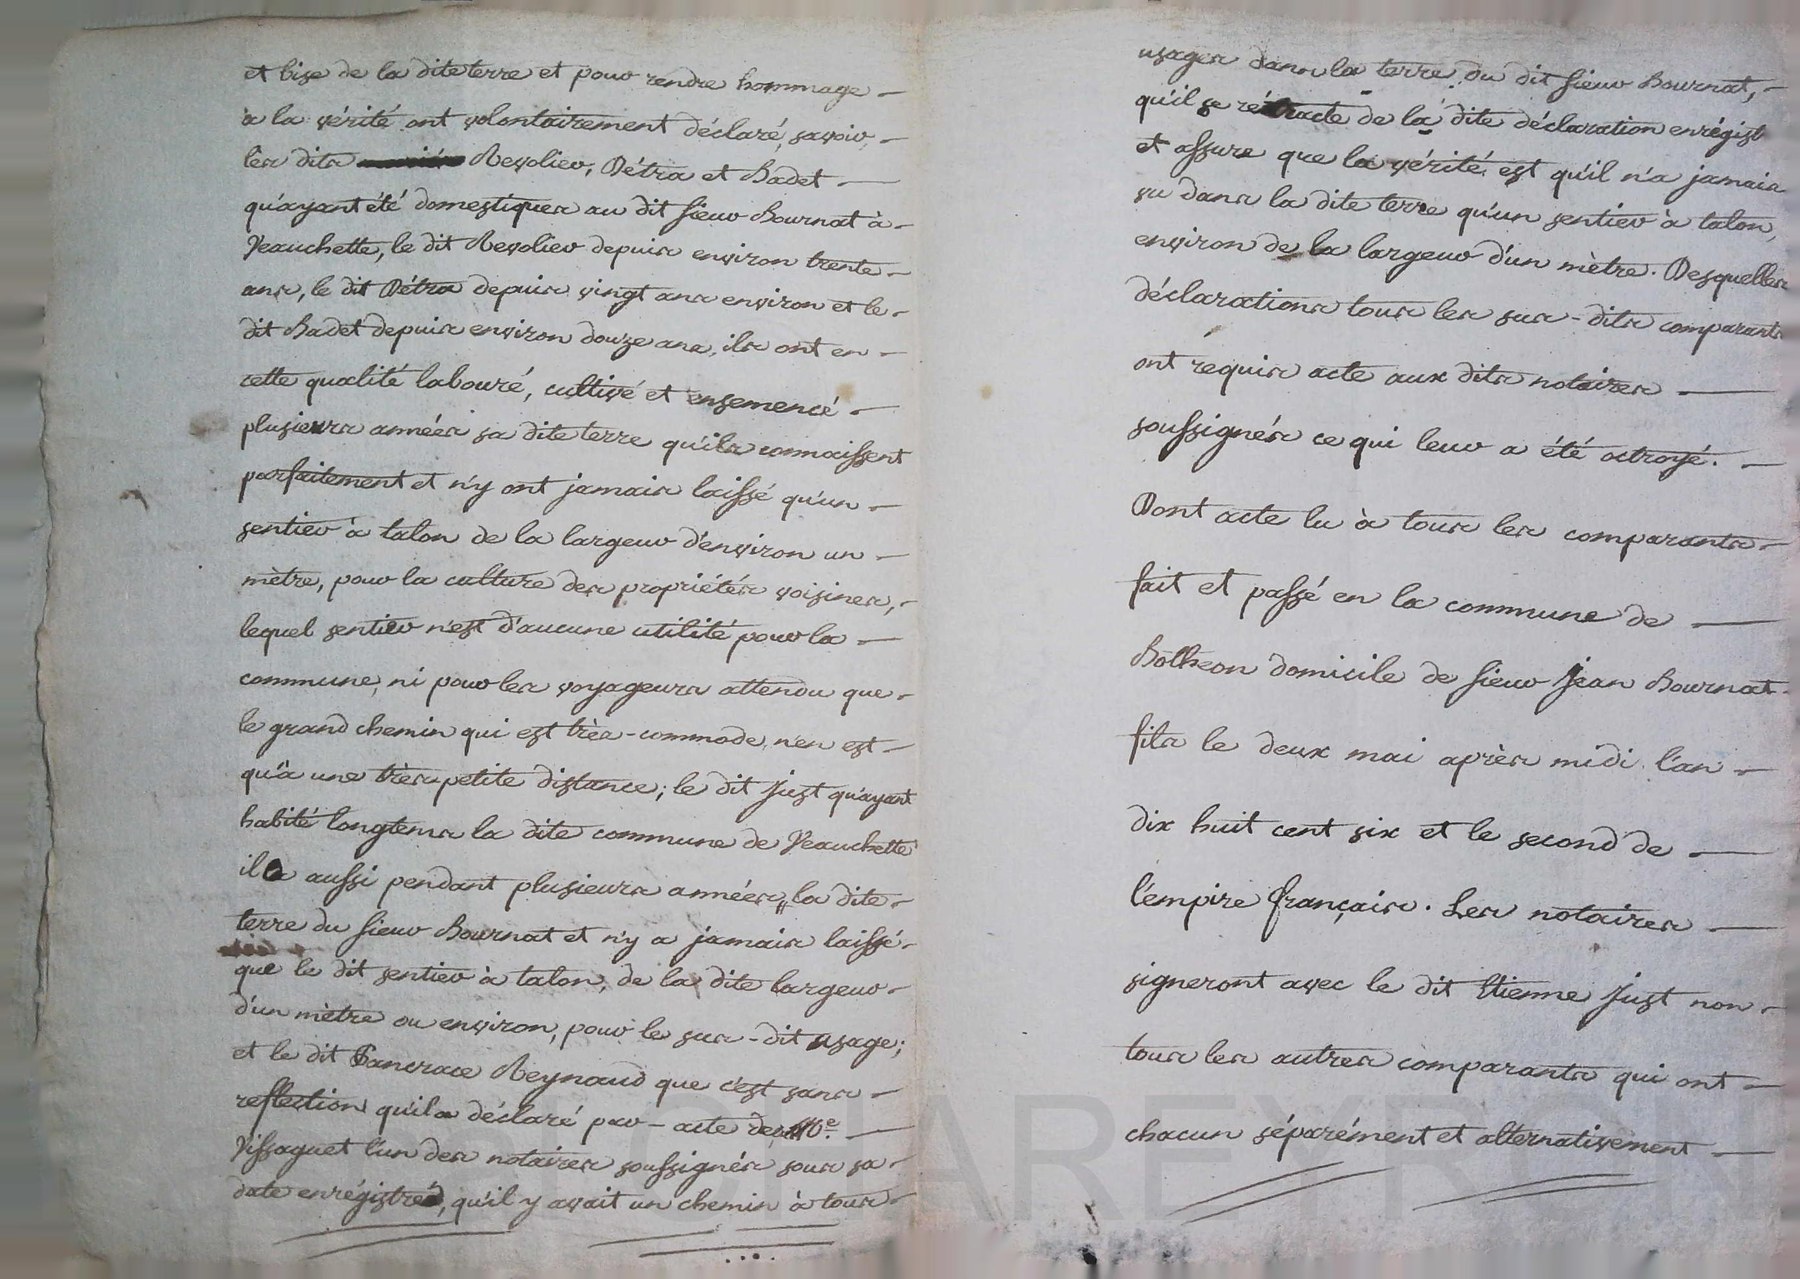 et bise de la dite terre et pour rendre hommage
à la vérité ont volontairement déclaré, savoir,
les dits Revolier, Pétra et Badet
qu'ayant été domestiques au dit sieur Bournat à
Veauchette, le dit Revolier depuis environ trente
ans, le dit Pétra depuis vingt ans environ et le
dit Badet depuis environ douze ans, ils ont en
cette qualité labouré, cultivé et ensemencé
plusieurs années sa dite terre qu'ils connaissent
parfaitement et n'y ont jamais laissé qu'un
sentier à talon de la largeur d'environ un
mètre, pour la culture des propriétés voisines,
lequel sentier n'est d'aucune utilité pour la
commune, ni pour les voyageurs attendu que
le grand chemin qui est très-commode, n'en est
qu'à une très petite distance; le dit Just qu'ayant
habité longtems la dite commune de Veauchette
il a aussi pendant plusieurs années,, la dite
terre du sieur Bournat et n'y a jamais laissé
que le dit sentier à talon, de la dite largeur
d'un mètre ou environ, pour le sus-dit usage;
et le dit Pancrace Reynaud que c'est sans
reflection qu'il a déclaré par acte devant Me.
Vissaguet l'un des notaires soussignés sous sa
date enrégistrée, qu'il y avait un chemin à tous
usages dans la terre du dit sieur Bournat,
qu'il se rétracte de la dite déclaration enrégist
et assure que la vérité est qu'il n'a jamais
vu dans la dite terre qu'un sentier à talon,
environ de la largeur d'un mètre. Desquelles
déclarations tous les sus-dits comparants
ont requis acte aux dits notaires
soussignés ce qui leur a été octroyé.
Dont acte lu à tous les comparants
fait et passé en la commune de
Bothéon domicile de sieur Jean Bournat
fils le deux mai après midi l'an
dix huit cent six et le second de
l'empire français. Les notaires
signeront avec le dit Etienne Just non
tous les autres comparants qui ont
chacun séparément et alternativement